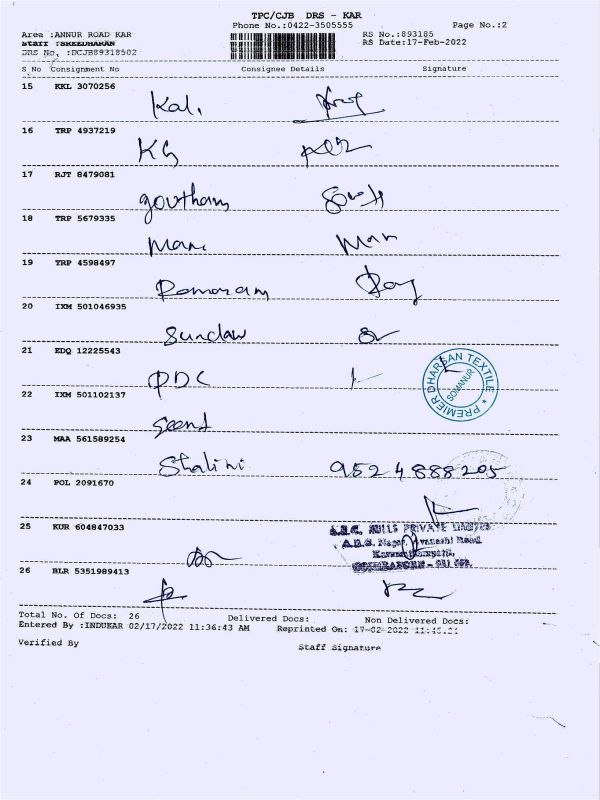 TPC/CJB DRS - KAR
Phone No.:0422-3505555 Page No.:2
Area :ANNUR ROAD KAR RS No.:893185
Staff :SREEDHARAN RS Date:17-Feb-2022
DRS No. :DCJB89318502
S No Consignment No Consignee Details Signature
15 KKL 3070256
Kal.
16 TRP 4937219
KG
17 RJT 8479081
goutham
18 TRP 5679335
Mani Man
19 TRP 4598497
Ramaram
20 IXM 501046935
Sundaw
21 EDQ 12225543
PDC
PREMIER DHARSAN TEXTILE
SOMANUR
22 IXM 501102137
23 MAA 561589254
Shalini 9524888205
24 POL 2091670
25 KUR 604847033
MILLS PRIVATE LIMITED
26 BLR 5351989413
Total No. Of Docs: 26 Delivered Docs: Non Delivered Docs:
Entered By :INDUKAR 02/17/2022 11:36:43 AM Reprinted On: 17-02-2022
Verified By Staff Signature